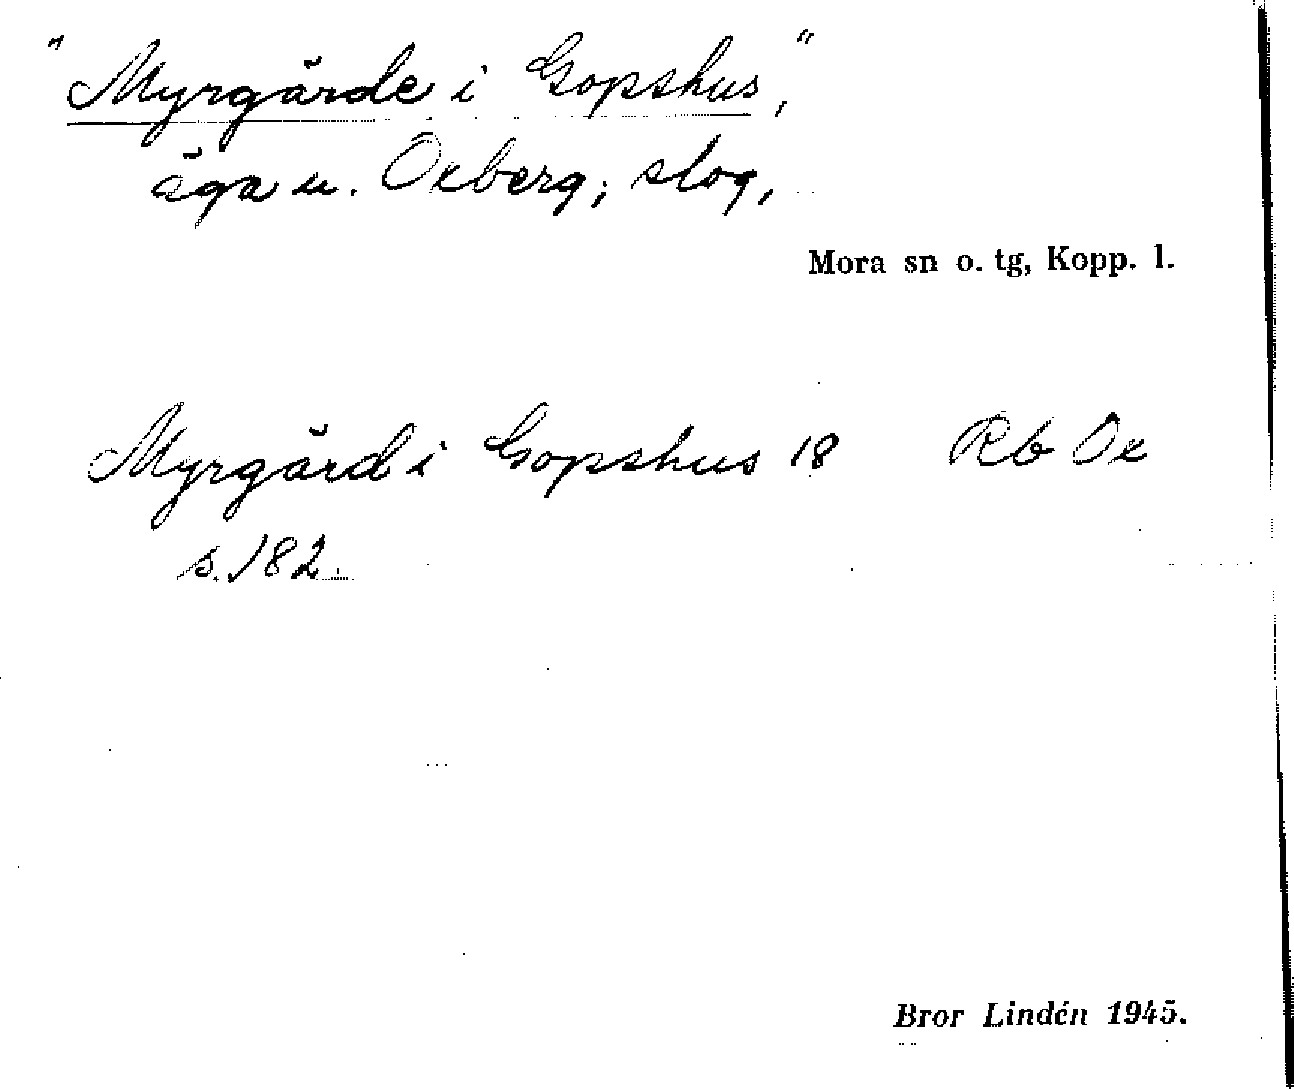 "Myrgärde i Gopshus,"
äga u. Oxberg; slog,
Mora sn o. tg, Kopp. l.
Myrgärd i Gopshus 18 Rb Ox
s. 182.
Bror Lindén 1945.